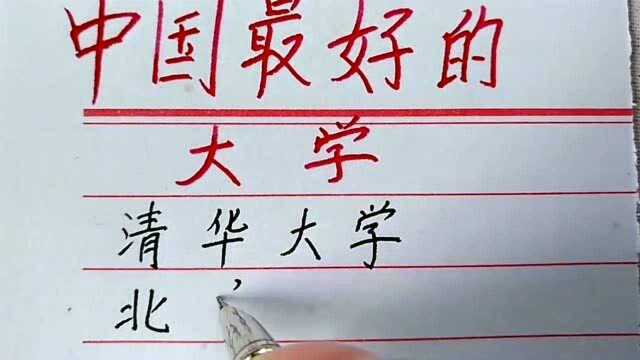 中国最好的
大学
清华大学
北